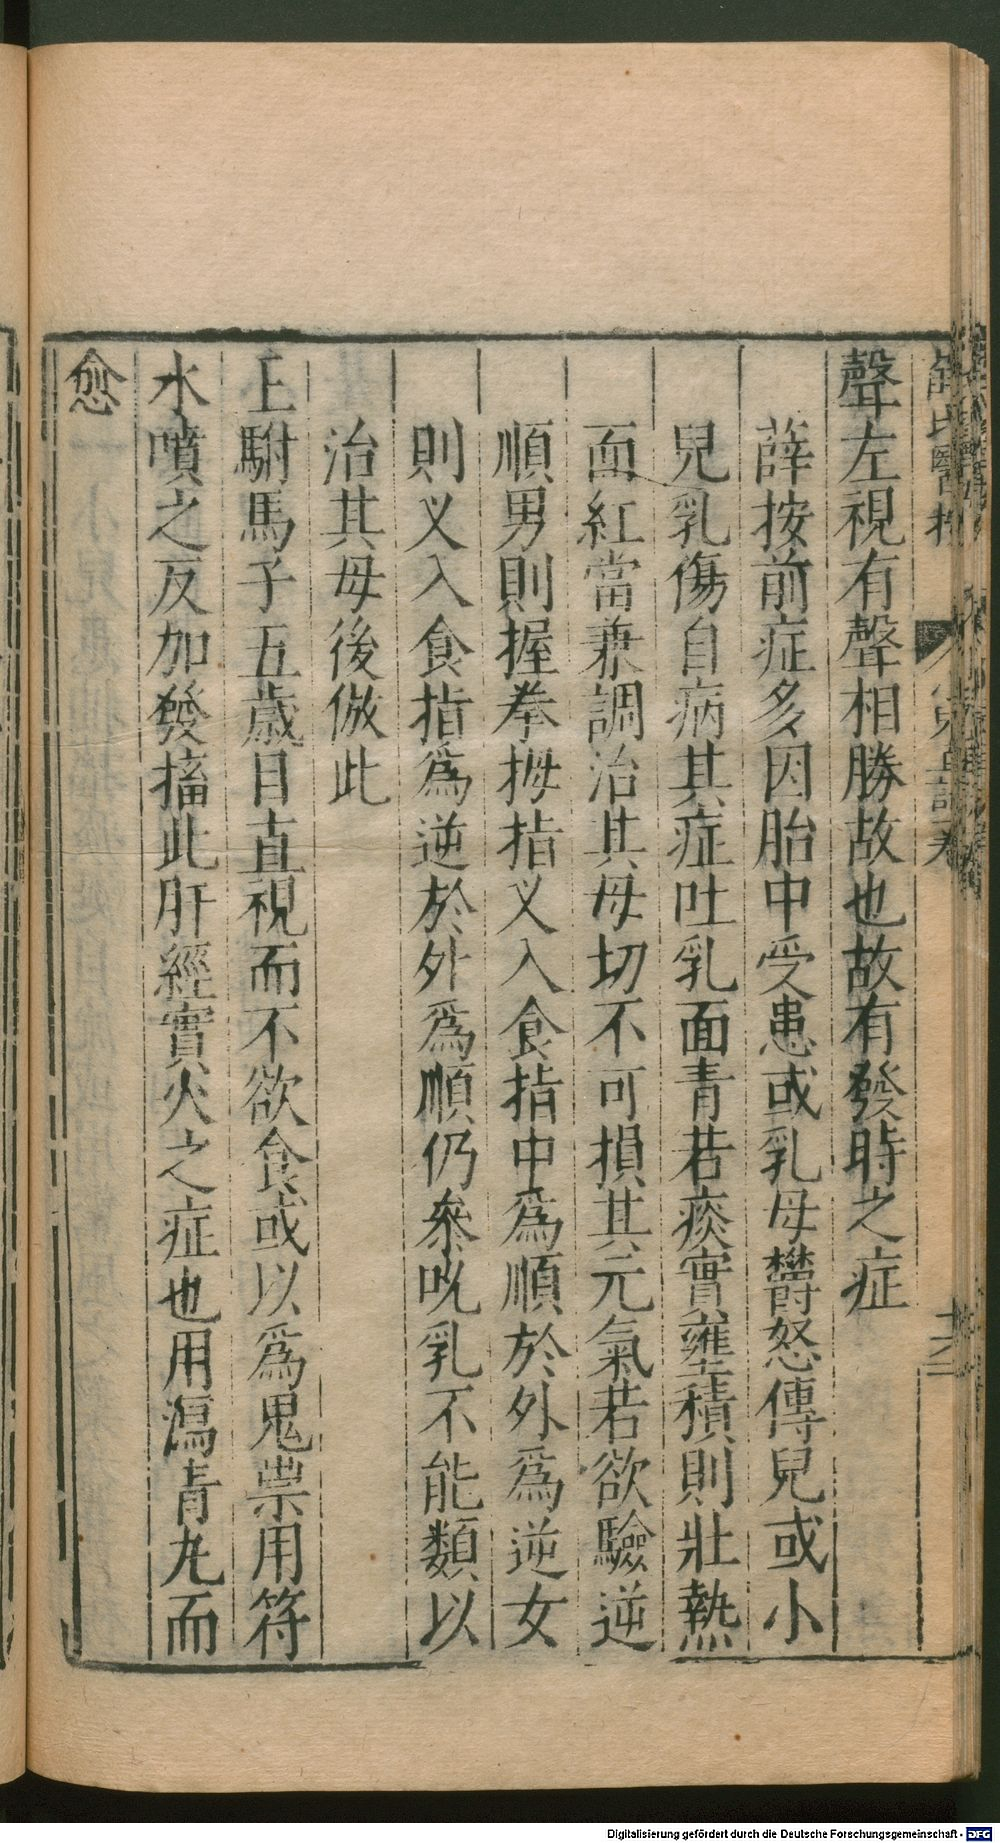 聲左視有聲相勝故也故有發時之症
薛按前症多因胎中受患或乳母鬱怒傳兒或小
兒乳傷自病其症吐乳面青若痰實壅積則壯熱
面紅當兼調治其母切不可損其元氣若欲驗逆
順男則握拳拇指叉入食指中爲順於外爲逆女
則叉入食指爲逆於外爲順仍參吮乳不能類以
治其母後倣此
上駙馬子五歲目直視而不欲食或以爲鬼祟用符
水噴之反加發搐此肝經實火之症也用瀉青丸而
愈
Digitalisierung gefördert durch die Deutsche Forschungsgemeinschaft - DFG